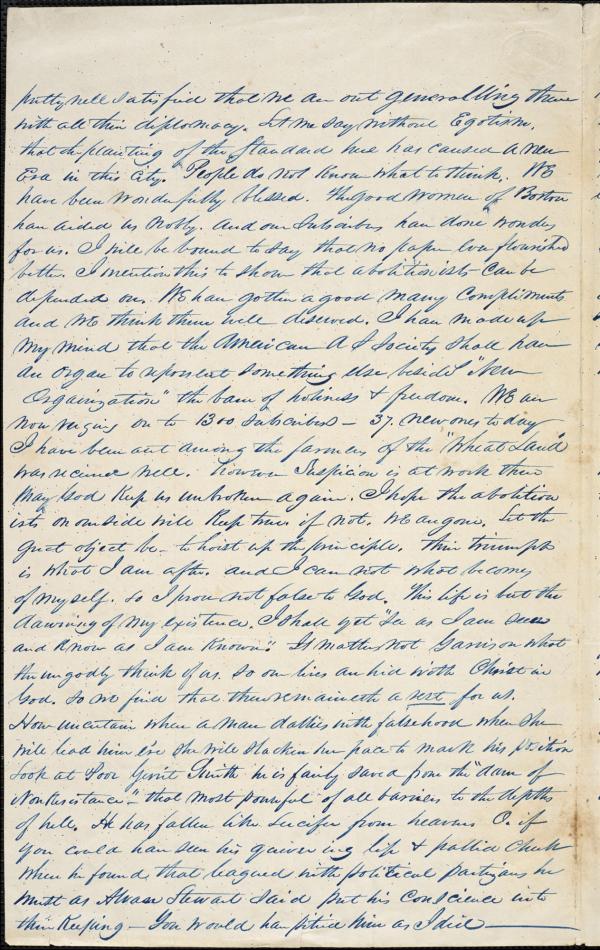 pretty well satisfied that we are out generalling them
with all their diplomacy. Let me say without Egotism,
that the planting of the Standard here has caused a new
Era in this City. People do not know what to think. WE
have been wonderfully blessed. The good women of Boston
have aided us nobly. and our Subscribers have done wonders
for us. I will be bound to say that no paper ever flourished
better. I mention this to show that abolitionists can be
depended on. WE have gotten a good many Compliments
and WE think them well deserved. I have made up
my mind that the American A S Society shall have
an organ to represent something else beside "New
Organization" the bane of holiness & freedom. WE are
now verging on to 1300 Subscribers - 37. new ones to day
I have been out among the farmers of the "Wheat Land"
was received well. however Suspicion is at work there
May God Keep us unbroken again. I hope the abolition
ists on our side will Keep true. if not. WE are gone. Let the
great object be - to hoist up the principle. Their triumph
is what I am after. and I care not what becomes
of myself. So I prove not false to God. This life is but the
dawning of my existence. I shall yet "See as I am seen
and Know as I am Known". It matters not Garrison what
the ungodly think of us. So our lives are hid with Christ in
God. So we find that there remaineth a rest for us.
How uncertain when a man dallies with falsehood where she
will lead him ere she will slacken her pace to mark his position
Look at Poor Gerrit Smith he is fairly saved from the "dam of
NonResistance" - that most powerful of all barriers to the depths
of hell. He has fallen like Lucifer from heaven O. if
you could have seen his quivering lip & pallid cheek
when he found that leagued with political partizans he
must as Alvan Stewart said put his Conscience into
their Keeping - You would have pitied him as I did